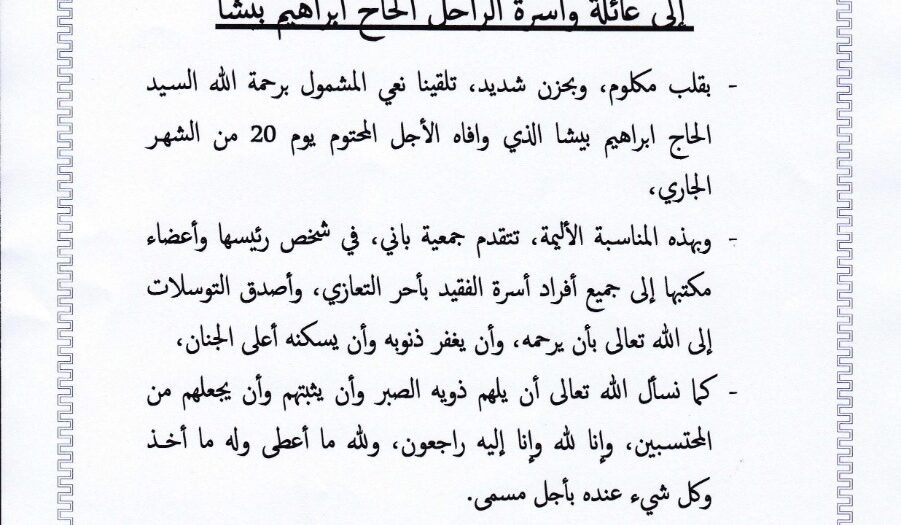 إلى عائلة وأسرة الراحل الحاج ابراهيم بيشا
- بقلب مكلوم، وبحزن شديد، تلقينا نعي المشمول برحمة الله السيد
الحاج ابراهيم بيشا الذي وافاه الأجل المحتوم يوم 20 من الشهر
الجاري،
- وبهذه المناسبة الأليمة، تتقدم جمعية باني، في شخص رئيسها وأعضاء
مكتبها إلى جميع أفراد أسرة الفقيد بأحر التعازي، وأصدق التوسلات
إلى الله تعالى بأن يرحمه، وأن يغفر ذنوبه وأن يسكنه أعلى الجنان،
- كما نسأل الله تعالى أن يلهم ذويه الصبر وأن يثبتهم وأن يجعلهم من
المحتسبين، وإنا لله وإنا إليه راجعون، ولله ما أعطى وله ما أخذ
وكل شيء عنده بأجل مسمى.